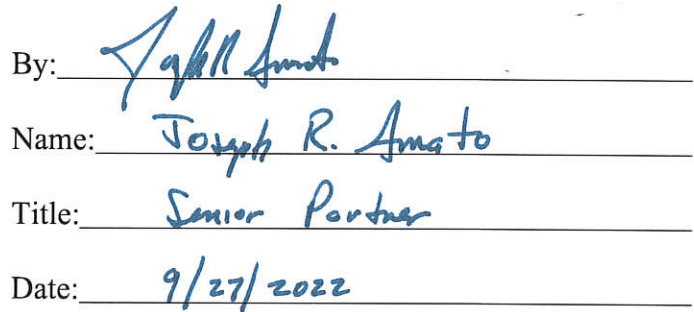 By: Joseph R Amato
Name: Joseph R. Amato
Title: Senior Partner
Date: 9/27/2022